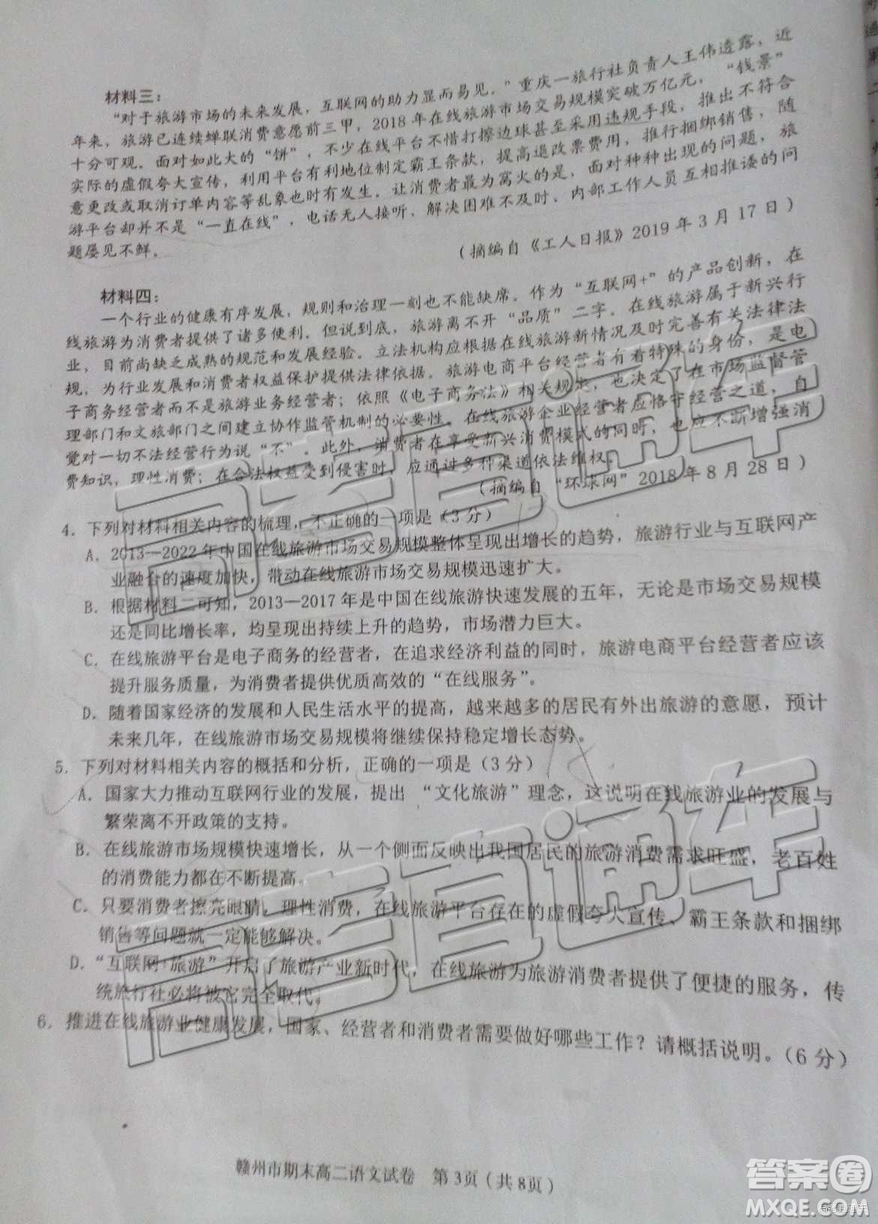 材料三：
“对于旅游市场的未来发展，互联网的助力显而易见。”重庆一旅行社负责人王伟透露，近
年来，旅游已连续蝉联消费意愿前三甲，2018年在线旅游市场交易规模突破万亿元，“钱景”
十分可观。面对如此大的“饼”，不少在线平台不惜打擦边球甚至采用违规手段，推出不符合
实际的虚假夸大宣传，利用平台有利地位制定霸王条款，提高退改票费用，推行捆绑销售，随
意更改或取消订单内容等乱象也时有发生。让消费者最为窝火的是，面对种种出现的问题，旅
游平台却并不是“一直在线”，电话无人接听、解决困难不及时、内部工作人员互相推诿的问
题屡见不鲜。
（摘编自《工人日报》2019年3月17日）
材料四：
一个行业的健康有序发展，规则和治理一刻也不能缺席。作为“互联网+”的产品创新，在
线旅游为消费者提供了诸多便利。但说到底，旅游离不开“品质”二字。在线旅游属于新兴行
业，目前尚缺乏成熟的规范和发展经验。立法机构应根据在线旅游新情况及时完善有关法律法
规，为行业发展和消费者权益保护提供法律依据。旅游电商平台经营者有着特殊的身份，是电
子商务经营者而不是旅游业务经营者；依照《电子商务法》相关规定，也决定了在市场监督管
理部门和文旅部门之间建立协作监管机制的必要性。在线旅游企业经营者应恪守经营之道，自
觉对一切不法经营行为说“不”。此外，消费者在享受新兴消费模式的同时，也应不断增强消
费知识，理性消费；在合法权益受到侵害时，应通过多种渠道依法维权。
（摘编自“环球网”2018年8月28日）
4．下列对材料相关内容的梳理，不正确的一项是（3分）
A．2013—2022年中国在线旅游市场交易规模整体呈现出增长的趋势，旅游行业与互联网产
业融合的速度加快，带动在线旅游市场交易规模迅速扩大。
B．根据材料二可知，2013—2017年是中国在线旅游快速发展的五年，无论是市场交易规模
还是同比增长率，均呈现出持续上升的趋势，市场潜力巨大。
C．在线旅游平台是电子商务的经营者，在追求经济利益的同时，旅游电商平台经营者应该
提升服务质量，为消费者提供优质高效的“在线服务”。
D．随着国家经济的发展和人民生活水平的提高，越来越多的居民有外出旅游的意愿，预计
未来几年，在线旅游市场交易规模将继续保持稳定增长态势。
5．下列对材料相关内容的概括和分析，正确的一项是（3分）
A．国家大力推动互联网行业的发展，提出“文化旅游”理念，这说明在线旅游业的发展与
繁荣离不开政策的支持。
B．在线旅游市场规模快速增长，从一个侧面反映出我国居民的旅游消费需求旺盛，老百姓
的消费能力都在不断提高。
C．只要消费者擦亮眼睛，理性消费，在线旅游平台存在的虚假夸大宣传、霸王条款和捆绑
销售等问题就一定能够解决。
D．“互联网+旅游”开启了旅游产业新时代，在线旅游为旅游消费者提供了便捷的服务，传
统旅行社必将被它完全取代。
6．推进在线旅游业健康发展，国家、经营者和消费者需要做好哪些工作？请概括说明。（6分）
赣州市期末高二语文试卷 第3页（共8页）
高考直通车
高考直通车
答案圈
MXQE.COM